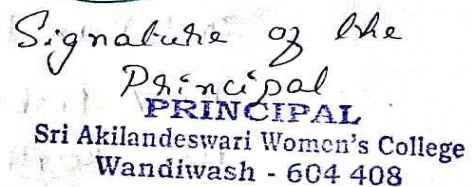 Signature of the
Principal
PRINCIPAL
Sri Akilandeswari Women's College
Wandiwash - 604 408